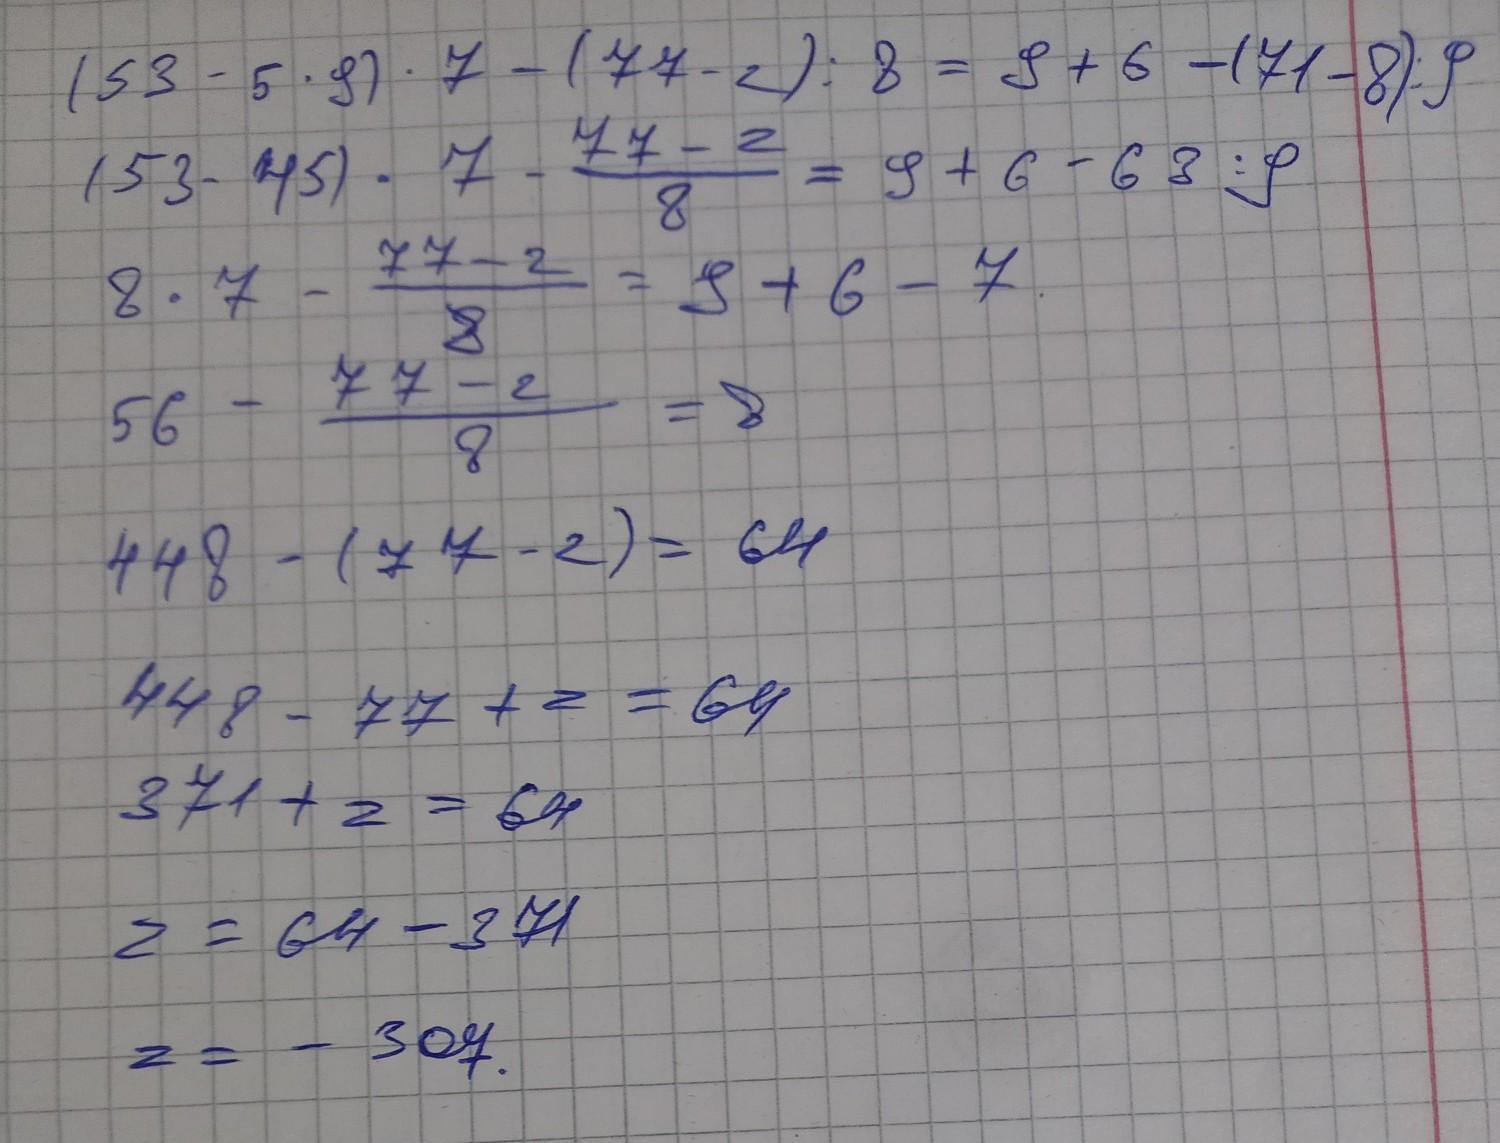 (53 - 5 · 9) · 7 - (77 - z) : 8 = 9 + 6 - (71 - 8) : 9
(53 - 45) · 7 - \frac{77 - z}{8} = 9 + 6 - 63 : 9
8 · 7 - \frac{77 - z}{8} = 9 + 6 - 7.
56 - \frac{77 - z}{8} = 8
448 - (77 - z) = 64
448 - 77 + z = 64
371 + z = 64
z = 64 - 371
z = - 307.